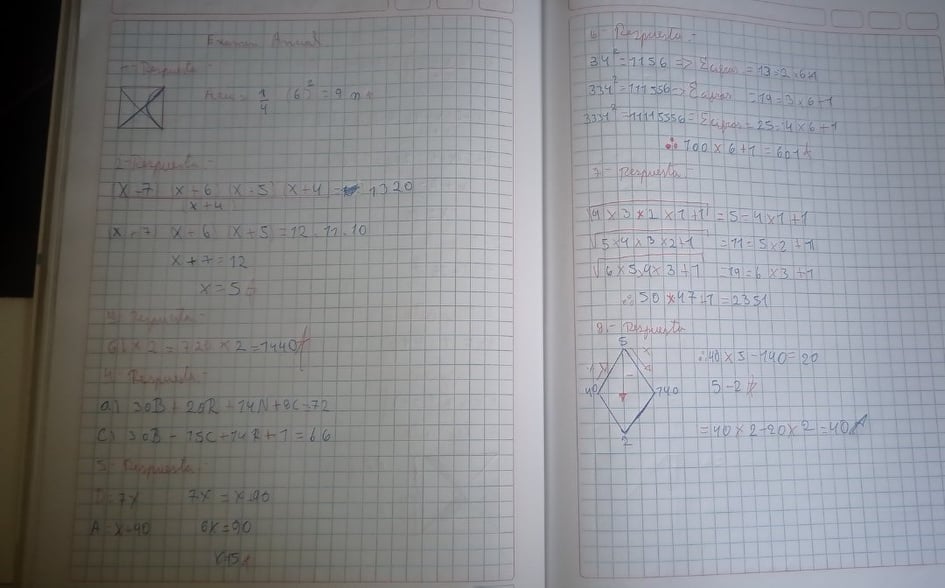 Examen Anual
1.- Respuesta.-
Area = 1/4 (6)² = 9 m
2.- Respuesta.-
(x+7) (x+6) (x+5) (x+4) = 1320
(x+4)
(x+7) (x+6) (x+5) = 12.11.10
x+7=12
x=5
3.- Respuesta.-
6! x 2 = 720 x 2 = 1440
4.- Respuesta
a) 30B + 20R + 14N + 8C = 72
c) 30B - 15C + 14R + 1 = 66
5.- Respuesta
7x 7x = x+90
A = x+90 6x = 90
x=15
6.- Respuesta.-
34² = 1156 => = 13 = 2x6+1
334² = 111556 => = 19 = 3x6+1
= 11115556 = = 25 = 4x6+1
∴ 100x6+1 = 601
7.- Respuesta
√4x3x2x1+1 = 5 = 4x1+1
√5x4x3x2+1 = 11 = 5x2+1
√6x5x4x3+1 = 19 = 6x3+1
∴ 50x47+1 = 2351
8.- Respuesta
5
∴ 40x5-140 = 20
40 140
5-2
2
= 40x2-20x2 = 40